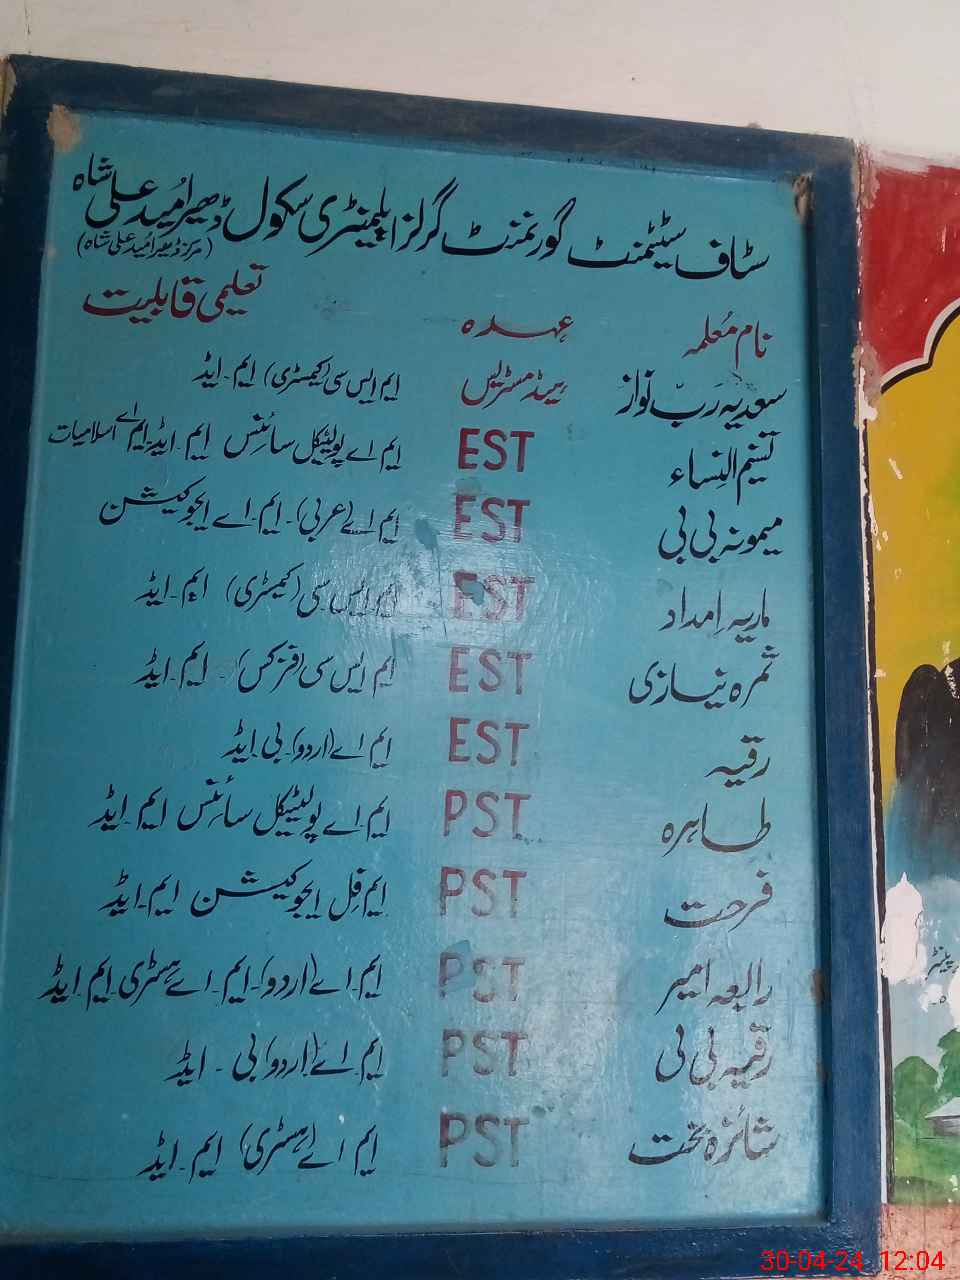 سٹاف سٹیٹمنٹ گورنمنٹ گرلز ایلیمنٹری سکول ڈھیر اُمید علی شاہ
(مرکز ڈھیر اُمید علی شاہ)
نام مُعلمہ عہدہ تعلیمی قابلیت
سعدیہ رَبّ نواز ہیڈ مسٹریس ایم ایس سی (کیمسٹری) ایم۔ایڈ
تسنیم النِساء EST ایم اے پولیٹیکل سائنس ایم۔ایڈ۔ایم اے اسلامیات
میمونہ بی بی EST ایم اے (عربی)۔ ایم۔اے ایجوکیشن
ماریہ اِمداد EST ایم ایس سی (کیمسٹری) ایم۔ایڈ
ثمرہ نیازی EST ایم ایس سی (فزکس)۔ ایم۔ایڈ
رقیہ EST ایم اے (اردو)۔ بی۔ایڈ
طاہرہ PST ایم۔اے پولیٹیکل سائنس ایم۔ایڈ
فرحت PST ایم فِل ایجوکیشن ایم۔ایڈ
رابعہ امیر PST ایم۔اے (اردو)۔ایم۔اے ہسٹری ایم۔ایڈ
رقیہ بی بی PST ایم اے (اردو) بی۔ ایڈ
شائزہ بخت PST ایم اے (ہسٹری) ایم۔ایڈ
پینٹر
30-04-24 12:04